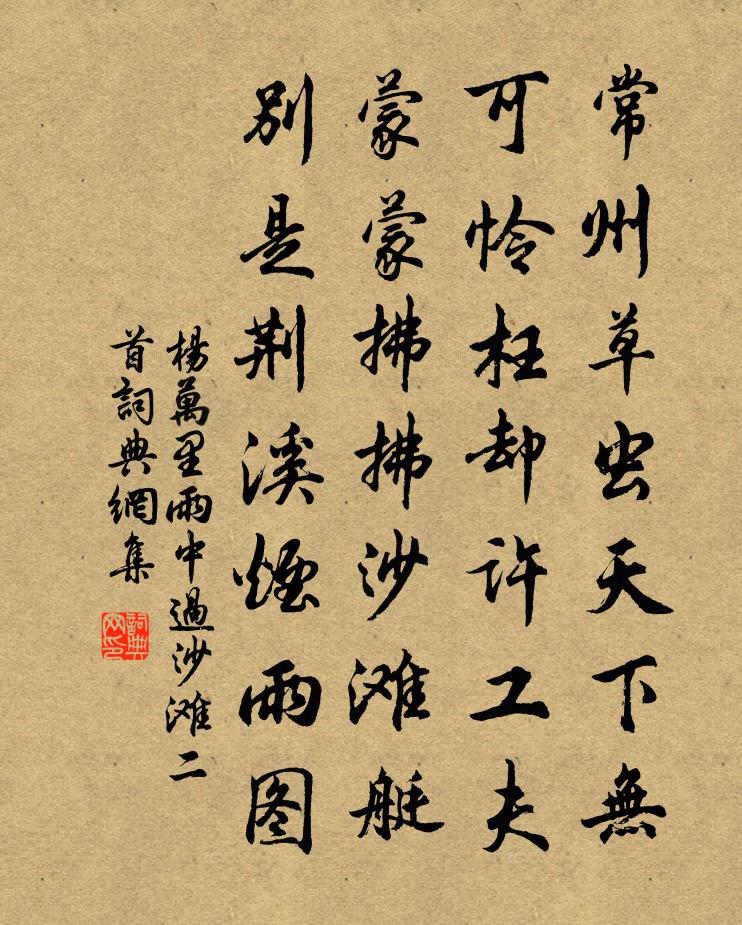 常州草虫天下無
可怜枉却许工夫
蒙蒙拂拂沙滩艇
別是荆溪煙雨图
楊萬里雨中過沙滩二
首詞典網集
詞典網印